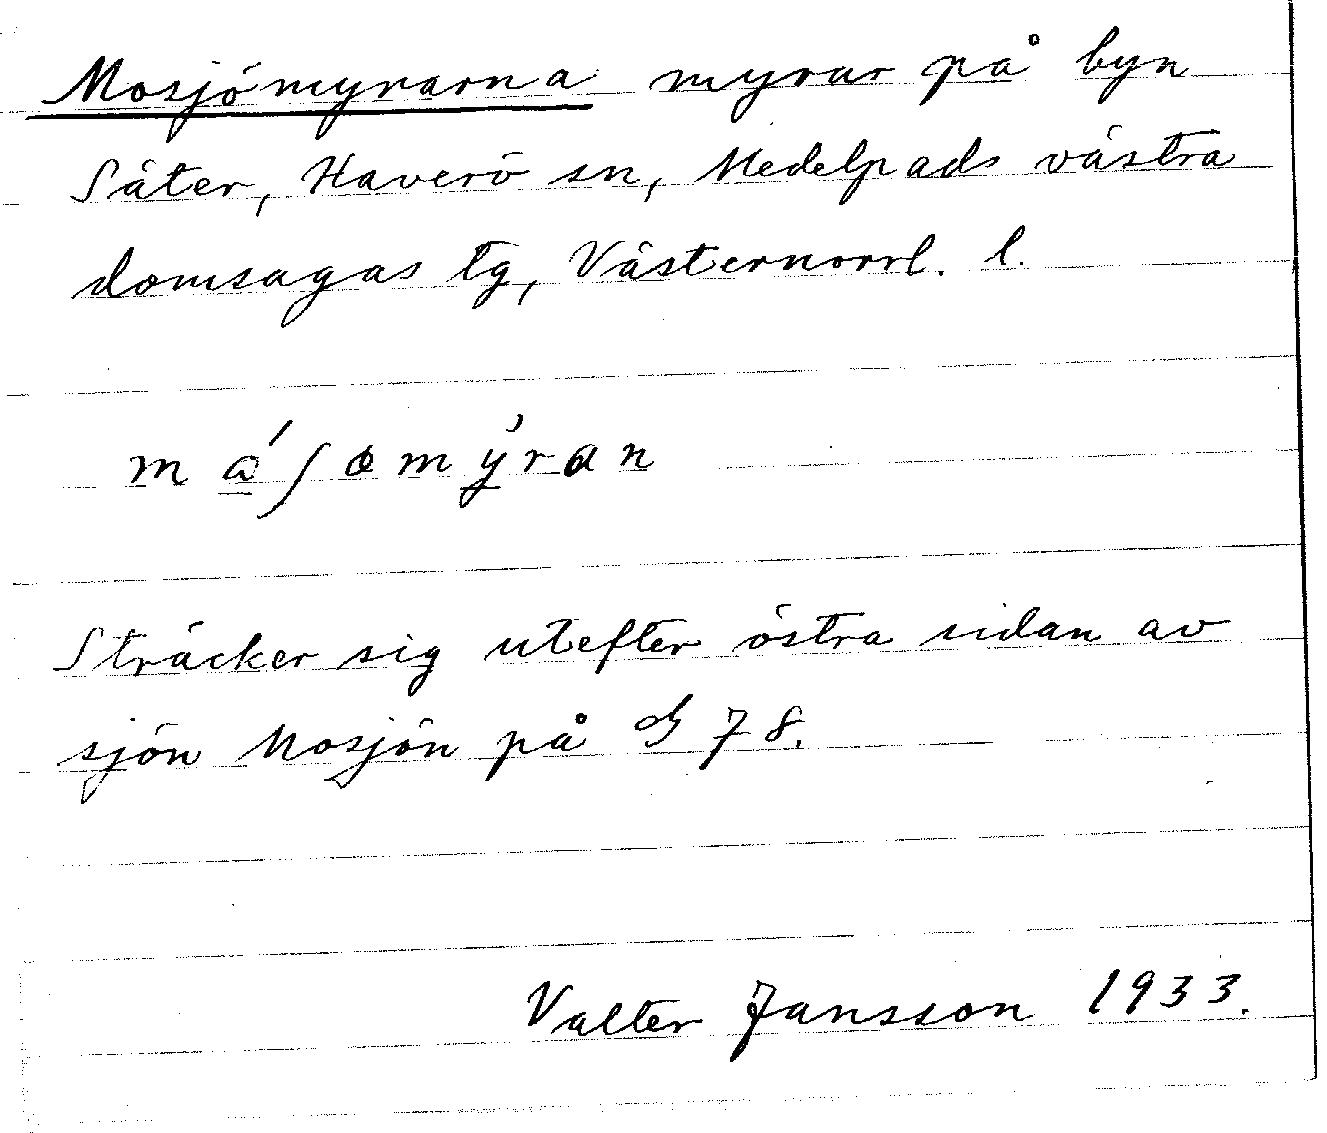 Mosjömyrarna myrar på byn
Säter, Haverö sn, Medelpads västra
domsagas tg, Västernorrl. l.
Sträcker sig utefter östra sidan av
sjön Mosjön på 78.
Valter Jansson 1933.